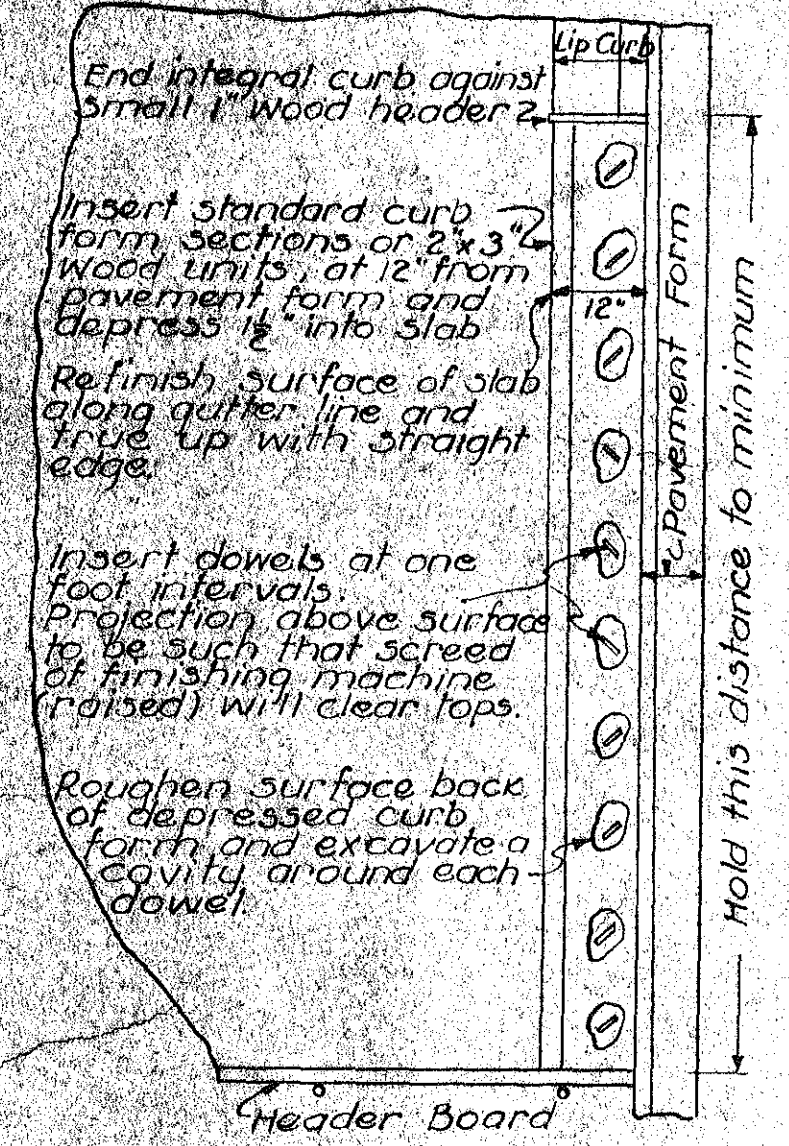 Lip Curb
End integral curb against
small 1" wood header
Insert standard curb
form sections or 2"x3"
wood units, at 12" from
pavement form and
depress 1½" into slab
12"
Refinish surface of slab
along gutter line and
true up with straight
edge.
Pavement Form
Hold this distance to minimum
Insert dowels at one
foot intervals.
Projection above surface
to be such that screed
of finishing machine
(raised) will clear tops.
Roughen surface back
of depressed curb
form and excavate a
cavity around each
dowel.
Header Board